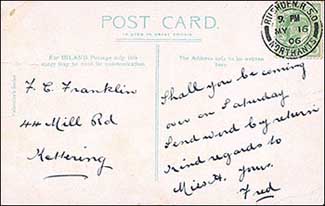 POST CARD.
For INLAND Postage only this
The Address only to be written
RUSHDEN. R.S.O.
9. PM
MY 16
06
NORTHANTS
F. C. Franklin
44 Mill Rd
Kettering
Shall you be coming
over on Saturday
Send word by return
kind regards to
Miss H. yours.
Fred